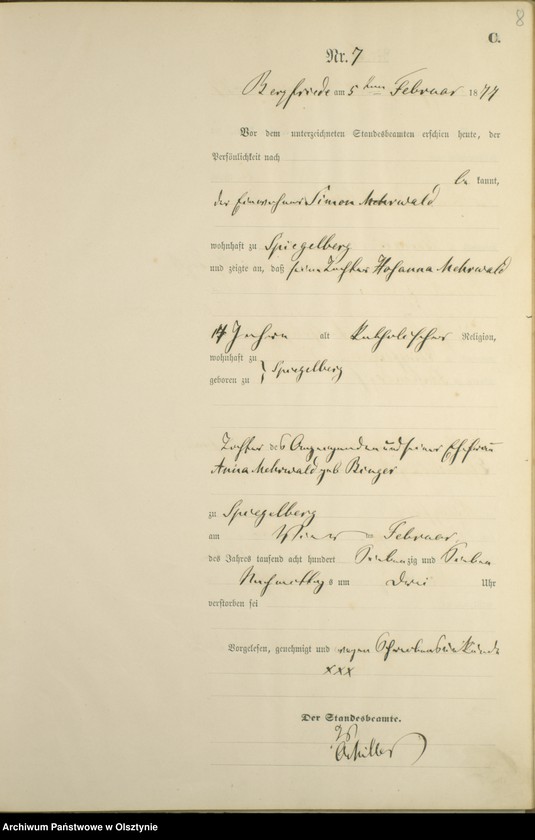 8
C.
Nr. 7
Bergfriede am 5ten Februar 1877
Vor dem unterzeichneten Standesbeamten erschien heute, der
Persönlichkeit nach
be kannt,
der Einwohner Simon Mehrwald
wohnhaft zu Spiegelberg
und zeigte an, daß seine Tochter Hosanna Mehrwald
Jahren alt katholischer Religion,
wohnhaft zu
geboren zu } Spiegelberg
Tochter des Anzeigenden und seiner Ehefrau
Anna Mehrwald geb Binger
zu Spiegelberg
am Vier ten Februar
des Jahres tausend acht hundert Siebenzig und Sieben
Nachmittags um Drei Uhr
verstorben sei
Vorgelesen, genehmigt und wegen Schreibensunkunde
xxx
Der Standesbeamte.
Schiller
Archiwum Państwowe w Olsztynie